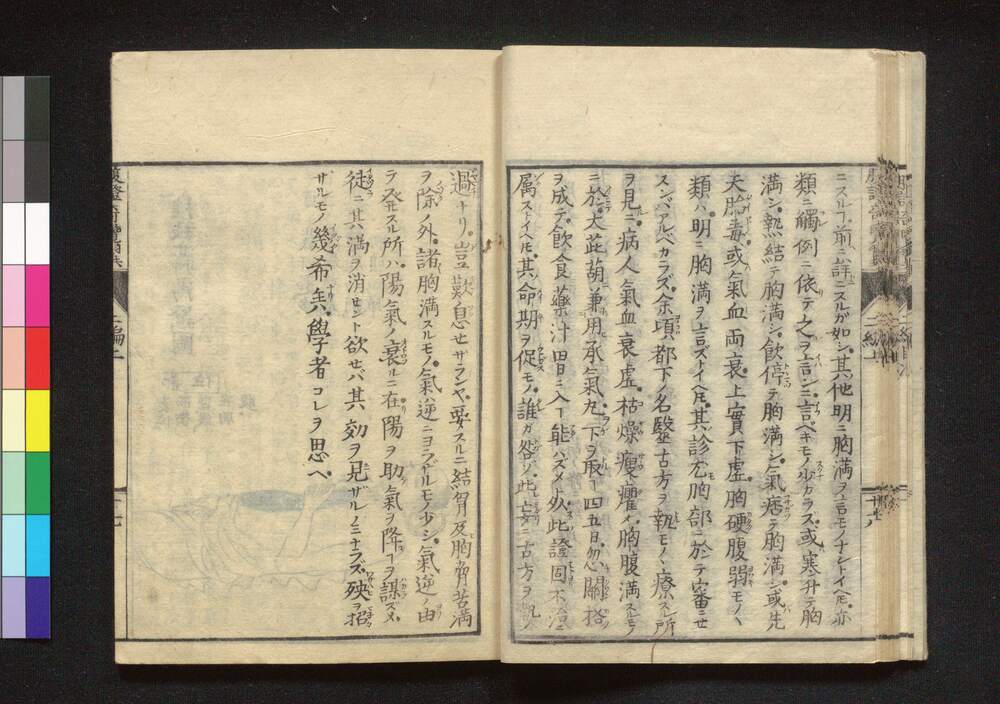 ニスルヿ前ニ詳ニスルガ如シ其他明ニ胸満ヲ言モノナシトイヘ𪜈亦
類ニ觸例ニ依テ之ヲ言ンニ言ベキモノ少カラズ或寒升テ胸
満シ熱結テ胸満シ飲停テ胸満シ氣痞テ胸満シ或先
天胎毒或氣血両衰上實下虚胸硬腹弱モノヽ
類ハ明ニ胸満ヲ言ズイヘ𪜈其診尤胸部ニ於テ審ニセ
スンバアルベカラズ余頃都下ノ名毉古方ヲ執モノヽ療スル所
ヲ見ニ病人氣血衰虚枯燥瘦癯メ胸腹満スルモノ
ニ於大茈葫兼用承氣丸下ヲ取一四五日忽關格
ヲ成テ飲食藥汁田日ニ入一能ハズメ死此證固不治ニ
属ストイヘ𪜈其命期ヲ促モノ誰カ咎ゾ此妄ニ古方ヲ
過ナリ豈歎息セザランヤ要スルニ結胷及胸脅苦満
ヲ除ノ外諸胸満スルモノ氣逆ニヨラザルモノ少シ氣逆ノ由
ラ発スル所ハ陽氣ノ衰ルニ在陽ヲ助氣ヲ降ヿヲ謀ズメ
徒ニ其満ヲ消セント欲セバ其効ヲ見ザルノミナラズ殃ヲ招
ザルモノ幾希矣學者コレヲ思ヘ